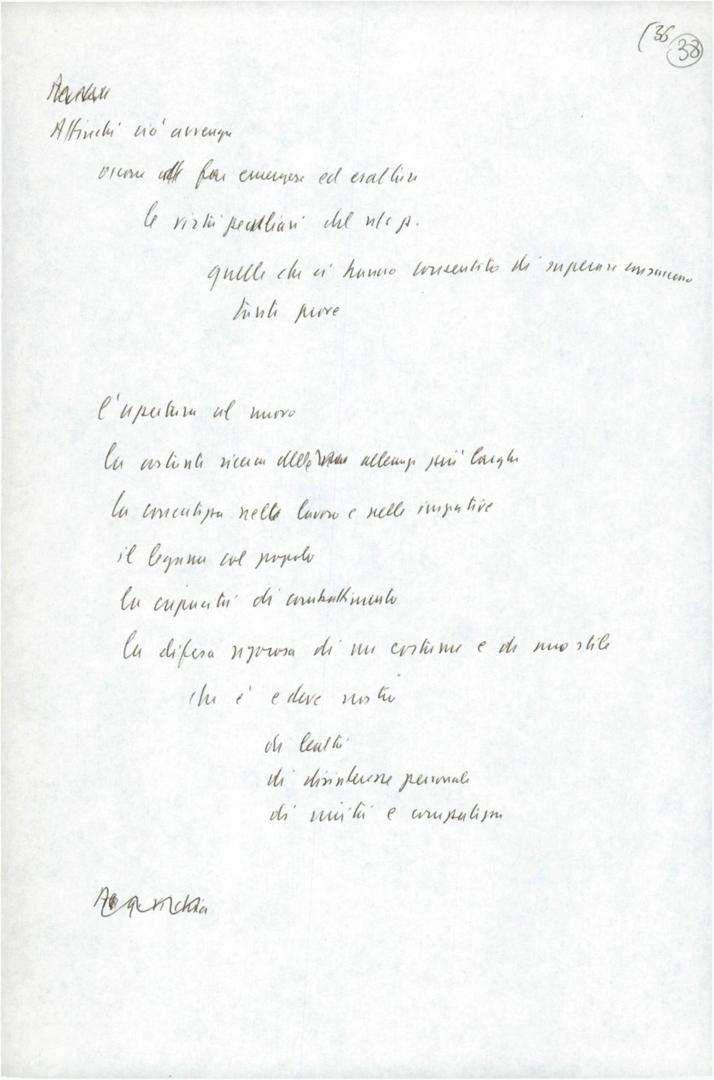 (36 38
Affinché ciò avvenga
occorre far emergere ed esaltare
le virtù peculiari del n/s p.
quelle che ci hanno consentito di superare
tante prove
l'apertura al nuovo
la costante ricerca delle alleanze più larghe
la concretezza nelle lavoro e nelle iniziative
il legame col popolo
la capacità di combattimento
la difesa rigorosa di un costume e di uno stile
che è e deve
di lealtà
di disinteresse personale
di unità e compattezza